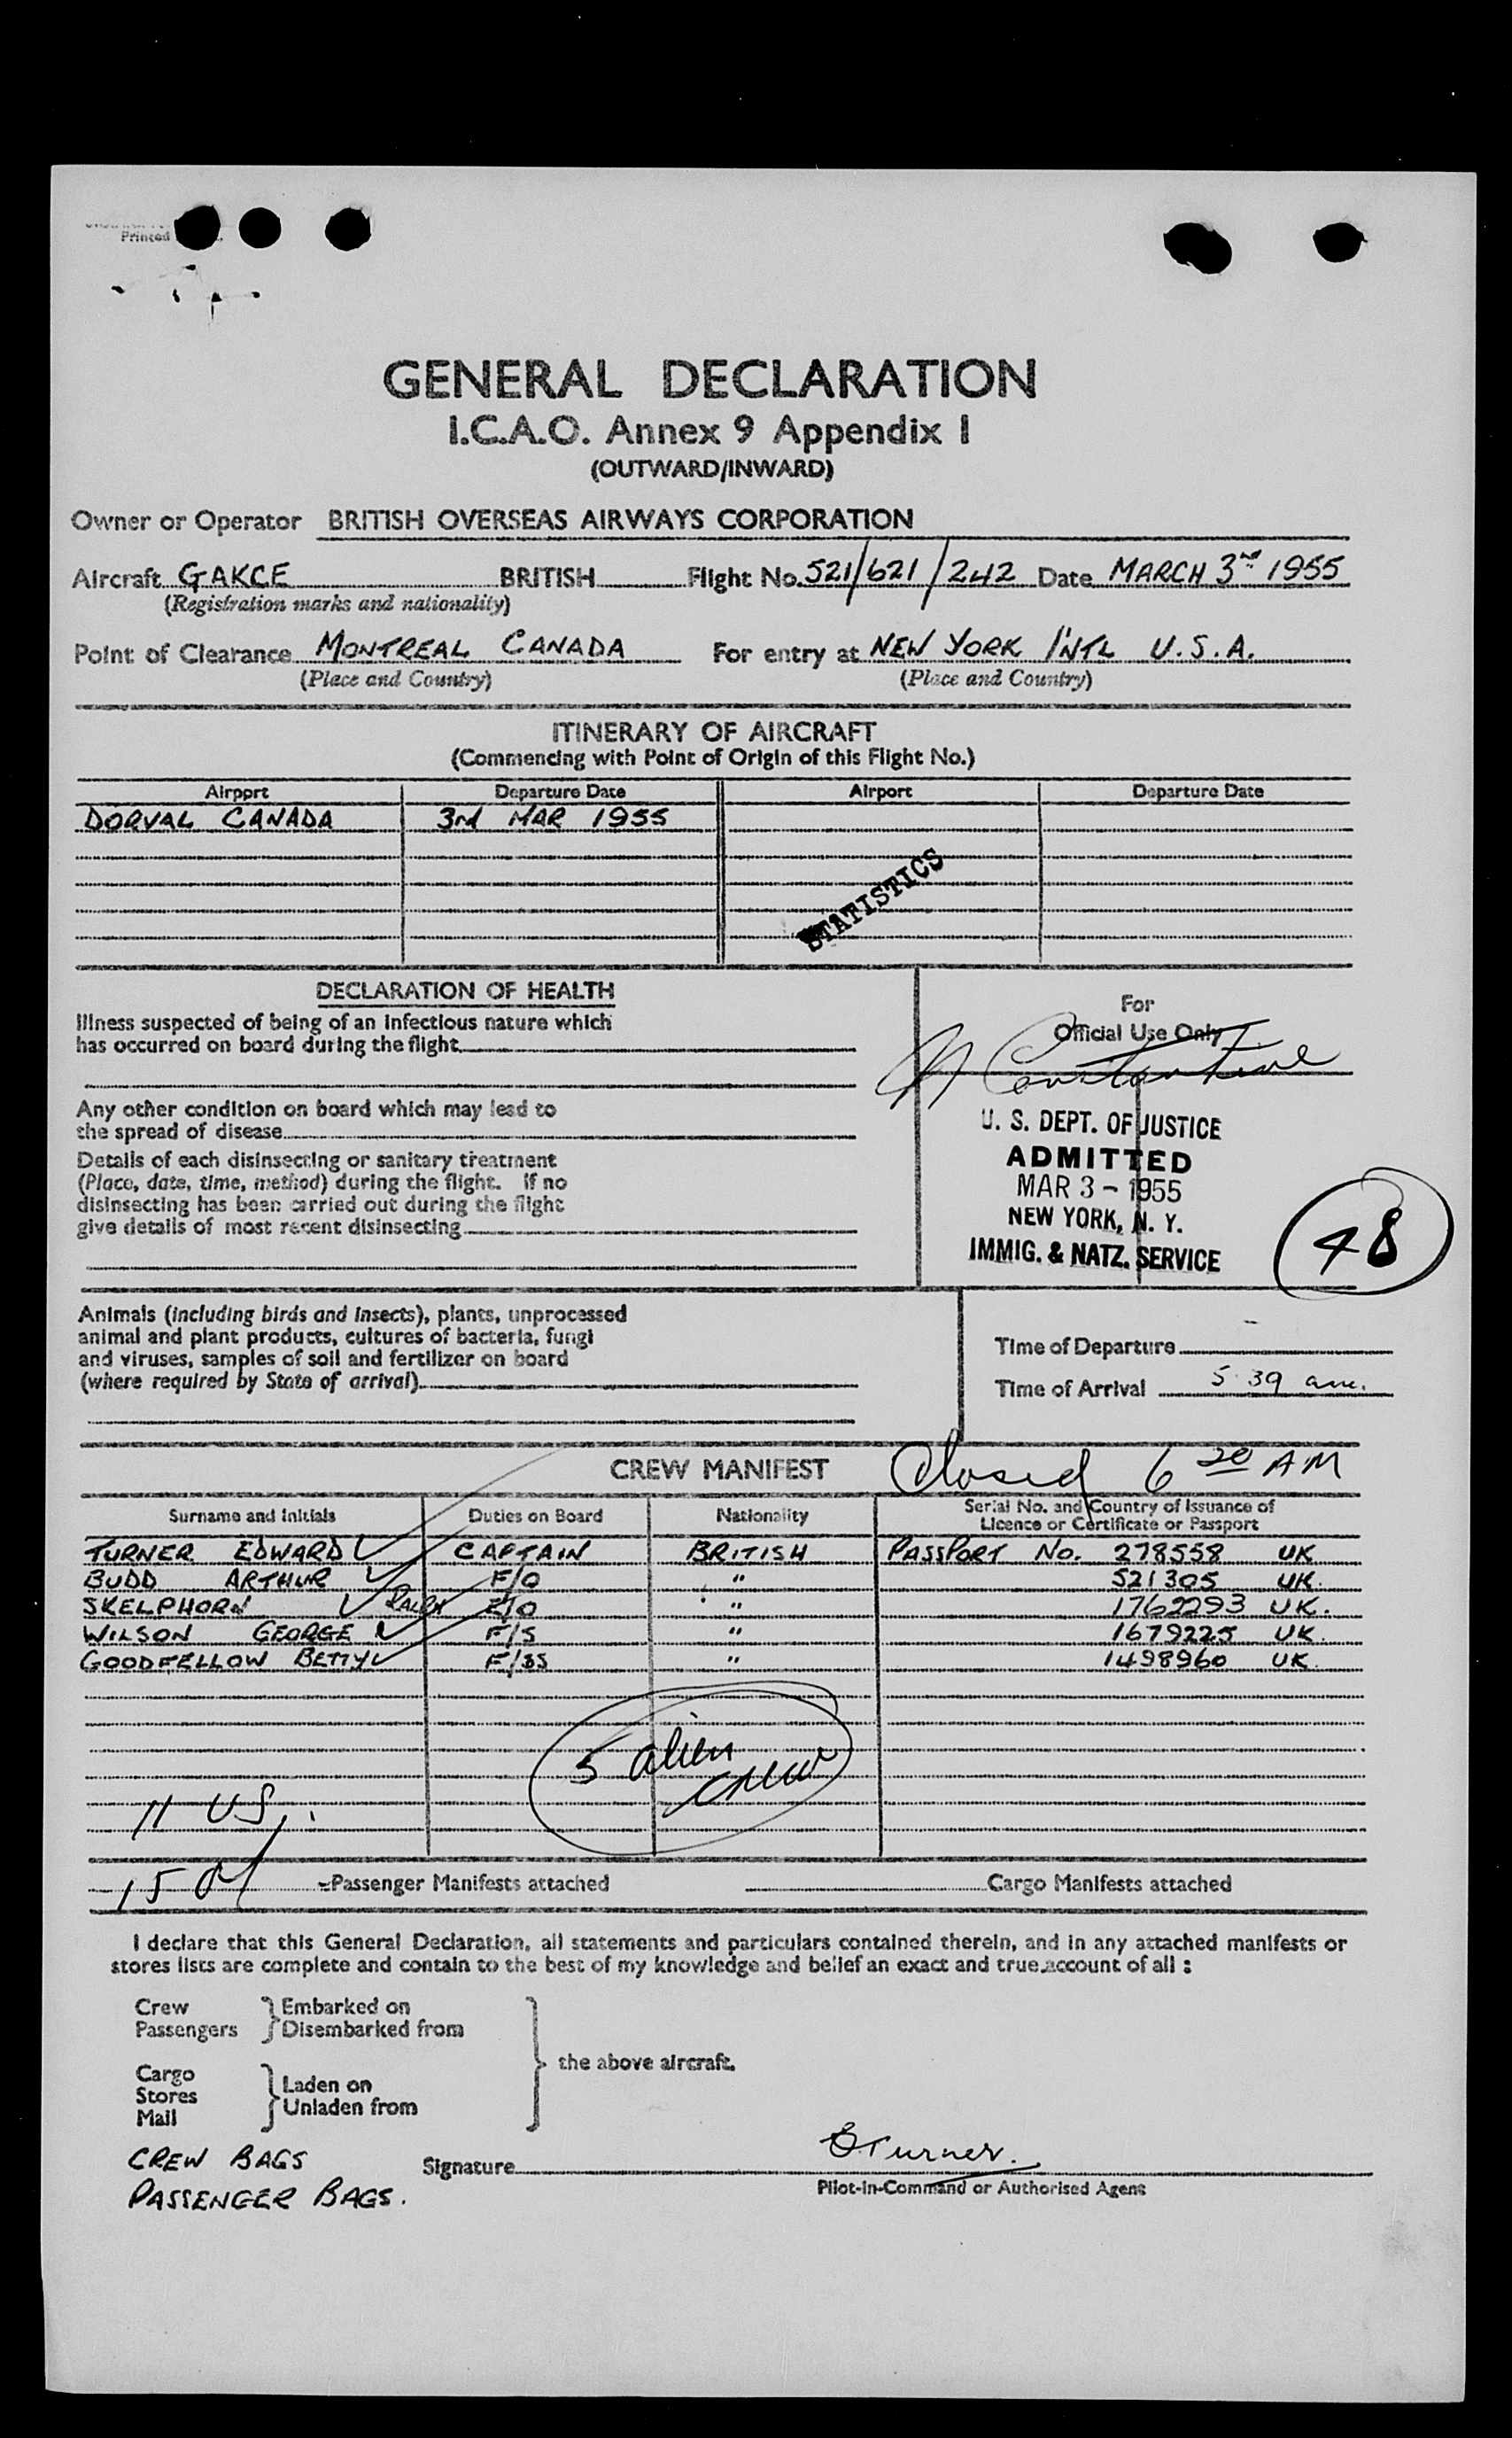 Printed
GENERAL DECLARATION
I.C.A.O. Annex 9 Appendix I
(OUTWARD/INWARD)
Owner or Operator BRITISH OVERSEAS AIRWAYS CORPORATION
Aircraft GAKCE BRITISH Flight No. 521/621/242 Date MARCH 3RD 1955
(Registration marks and nationality)
Point of Clearance MONTREAL CANADA For entry at NEW YORK INTL U.S.A.
(Place and Country) (Place and Country)
ITINERARY OF AIRCRAFT
(Commencing with Point of Origin of this Flight No.)
Airport Departure Date Airport Departure Date
DORVAL CANADA 3rd MAR 1955
STATISTICS
DECLARATION OF HEALTH
Illness suspected of being of an infectious nature which
has occurred on board during the flight
Any other condition on board which may lead to
the spread of disease
Details of each disinsecting or sanitary treatment
(Place, date, time, method) during the flight. If no
disinsecting has been carried out during the flight
give details of most recent disinsecting
For
Official Use Only
Constantine
U. S. DEPT. OF JUSTICE
ADMITTED
MAR 3 - 1955
NEW YORK, N. Y.
IMMIG. & NATZ. SERVICE
48
Animals (including birds and insects), plants, unprocessed
animal and plant products, cultures of bacteria, fungi
and viruses, samples of soil and fertilizer on board
(where required by State of arrival)
Time of Departure
Time of Arrival 5 39 am.
CREW MANIFEST Closed 6 20 AM
Surname and Initials Duties on Board Nationality Serial No. and Country of Issuance of
Licence or Certificate or Passport
TURNER EDWARD CAPTAIN BRITISH PASSPORT No. 278558 UK
BUDD ARTHUR F/O " 521305 UK.
SKELPHORN RALPH E/O " 1762293 UK.
WILSON GEORGE F/S " 1679225 UK.
GOODFELLOW BETTY F/SS " 1498960 UK.
5 alien
crew
11 US
15 al
Passenger Manifests attached Cargo Manifests attached
I declare that this General Declaration, all statements and particulars contained therein, and in any attached manifests or
stores lists are complete and contain to the best of my knowledge and belief an exact and true account of all :
Crew } Embarked on
Passengers } Disembarked from
the above aircraft.
Cargo
Stores } Laden on
Mail } Unladen from
CREW BAGS
PASSENGER BAGS.
Signature E Turner.
Pilot-in-Command or Authorised Agent